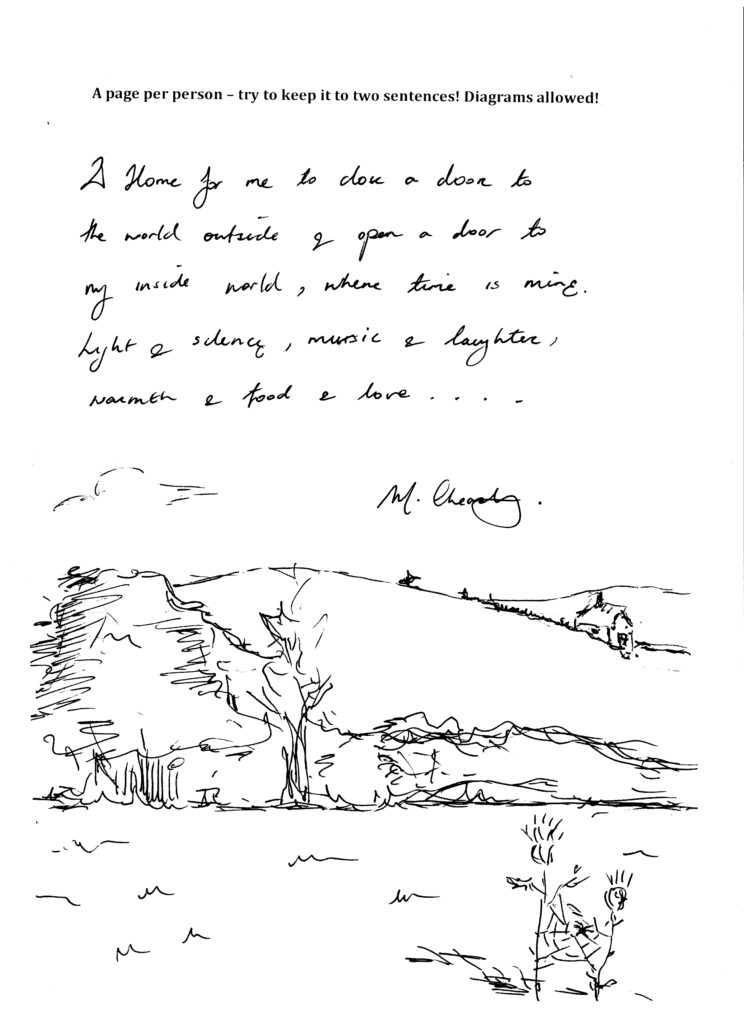 A page per person – try to keep it to two sentences! Diagrams allowed!
A Home for me to close a door to
the world outside & open a door to
my inside world, where time is mine.
Light & silence, music & laughter,
warmth & food & love . . . . .
M.